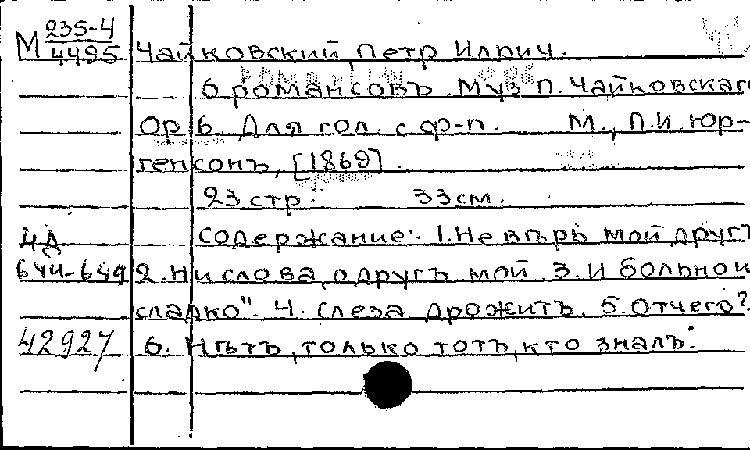 М 235-4
4495
Чайковский, Петр Ильич.
6 романсовъ. Муз. П. Чайковскаго
Ор. 6. Для гол. с ф-п. М., П.И. Юр-
генсонъ, [1869].
23 стр. 33 см.
Содержание: 1. Не верь мой другъ
4Д
644-649
2. Ни слова, о другъ мой. 3. И больно и
сладко". 4. Слеза дрожитъ. 5. Отчего?
42927
6. Нѣтъ, только тотъ, кто зналъ.